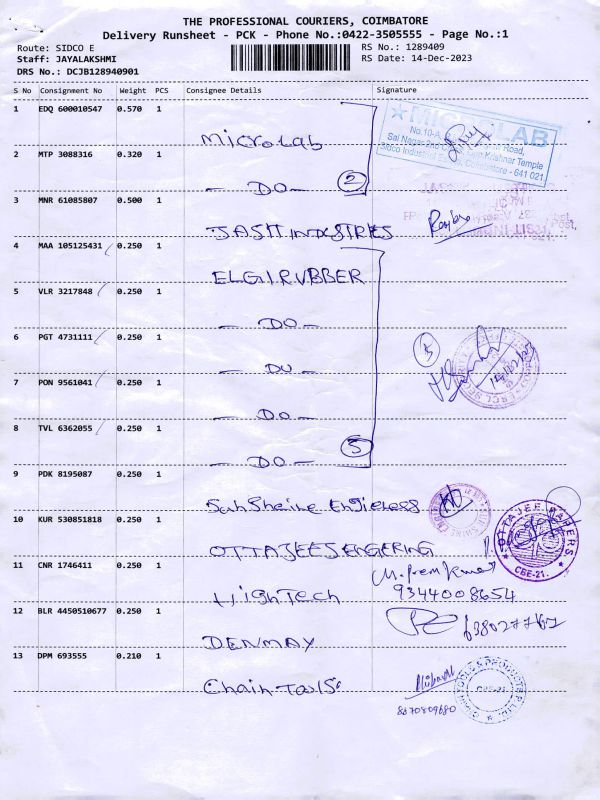 THE PROFESSIONAL COURIERS, COIMBATORE
Delivery Runsheet - PCK - Phone No.:0422-3505555 - Page No.:1
Route: SIDCO E
RS No.: 1289409
Staff: JAYALAKSHMI
RS Date: 14-Dec-2023
DRS No.: DCJB128940901
S No Consignment No Weight PCS Consignee Details Signature
1 EDQ 600010547 0.570 1 MicroLab
MICROLAB
2 MTP 3088316 0.320 1 — DO — 2
3 MNR 61085807 0.500 1 JASH INDUSTRIES
4 MAA 105125431 0.250 1 ELGI RUBBER
5 VLR 3217848 0.250 1 — DO —
6 PGT 4731111 0.250 1 — DO — 5
7 PON 9561041 0.250 1 — DO —
8 TVL 6362055 0.250 1 — DO — 5
9 PDK 8195087 0.250 1
10 KUR 530851818 0.250 1 OTTAJEES ENGERING
OTTAJEE PAPERS
CBE-21.
11 CNR 1746411 0.250 1 HighTech M. Prem Kumar
9344008654
12 BLR 4450510677 0.250 1 DENMAY
13 DPM 693555 0.210 1 Chain Tools
8870809680